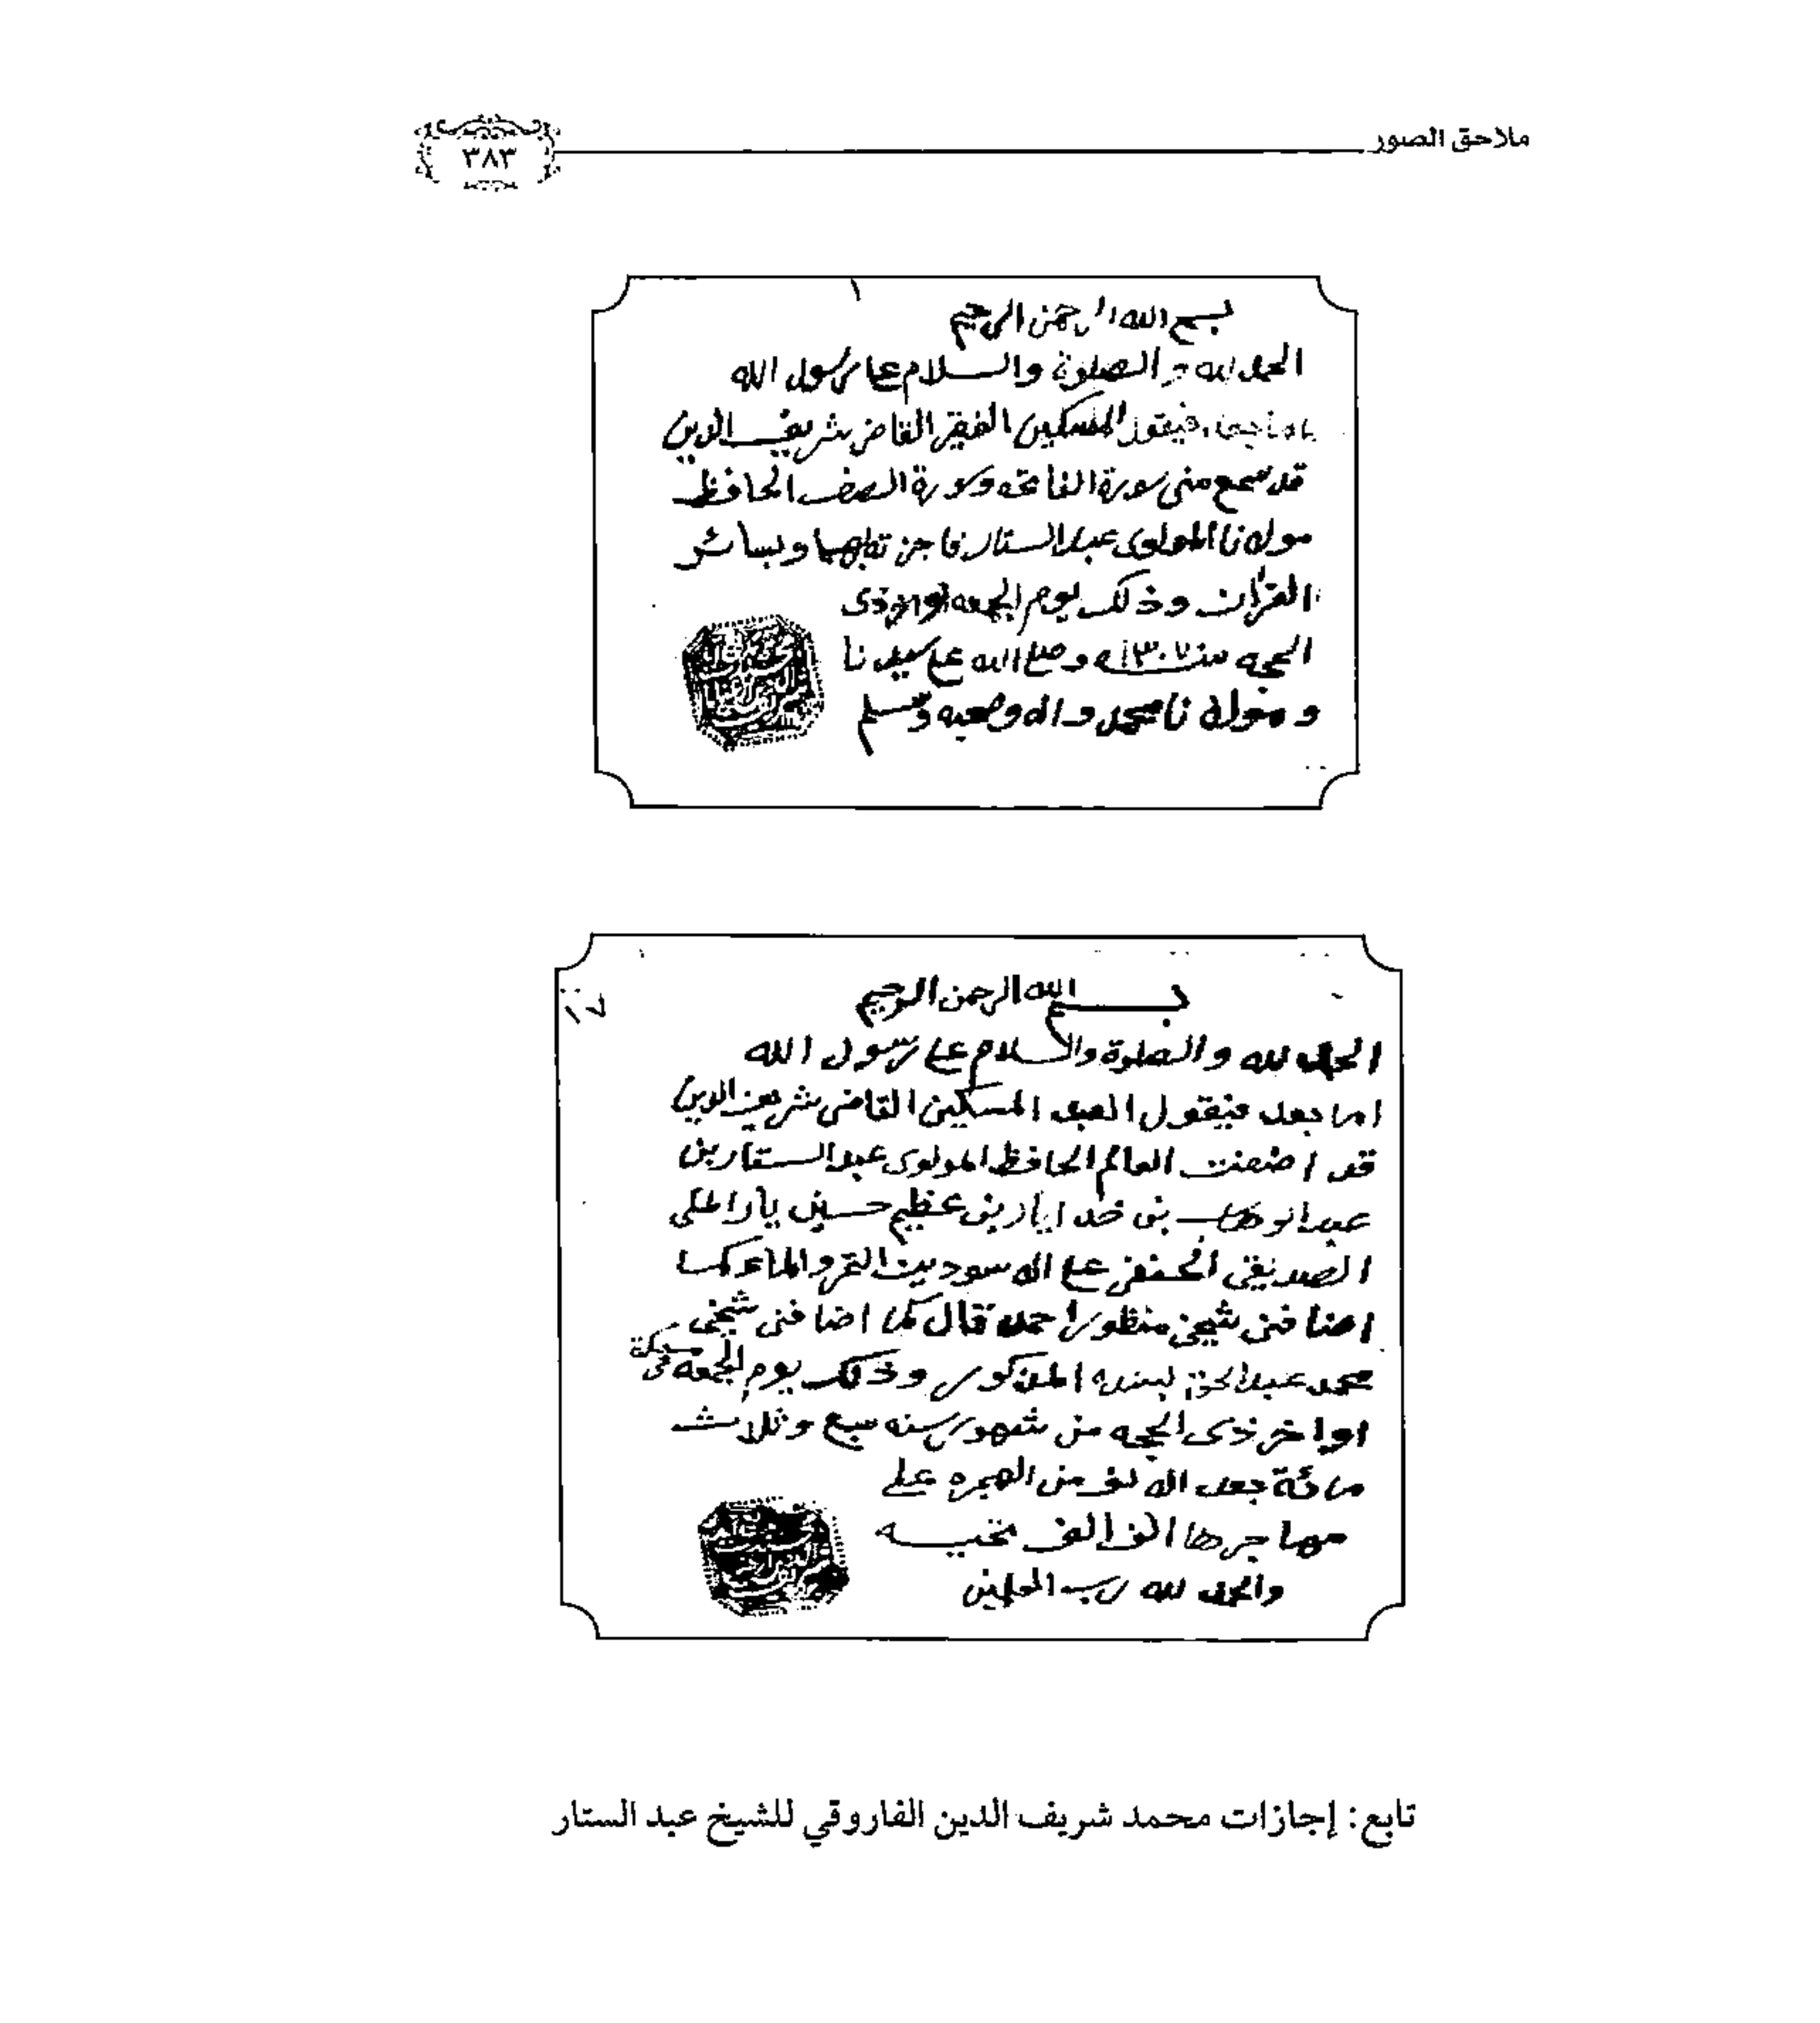 ملاحق الصور
٣٨٣
بسم الله الرحمن الرحيم
الحمد لله والصلوة والسلام على رسول الله
فيقول المسكين الفقير القاضى شريف الدين
قد سمع منى سورة الفاتحه وسورة الصف الحافظ
مولانا المولوى عبد الستار فاجزته بهما وبسائر
القرأن وذلك يوم الجمعه ذى
الحجه سنه ١٣٠٧ وصلى الله على سيدنا
ومولانا محمد واله وصحبه وسلم
١٧
بسم الله الرحمن الرحيم
الحمد لله والصلوة والسلام على رسول الله
اما بعد فيقول العبد المسكين القاضى شريف الدين
قد اضفت العالم الحافظ المولوى عبد الستار بن
عبد الوهاب بن خدايار بن عظيم حسين يار
الصديقى الحنفى على الاسودين التمر والماء كما
اضافنى شيخى منظور احمد قال كما اضافنى شيخى
محمد عبد الحق بسنده المذكور وذلك يوم الجمعه فى
اواخر ذى الحجه من شهور سنه سبع وثلاث
مائة بعد الالف من الهجره على
مهاجرها الف الف تحيه
والحمد لله رب العلمين
تابع: إجازات محمد شريف الدين الفاروقي للشيخ عبد الستار